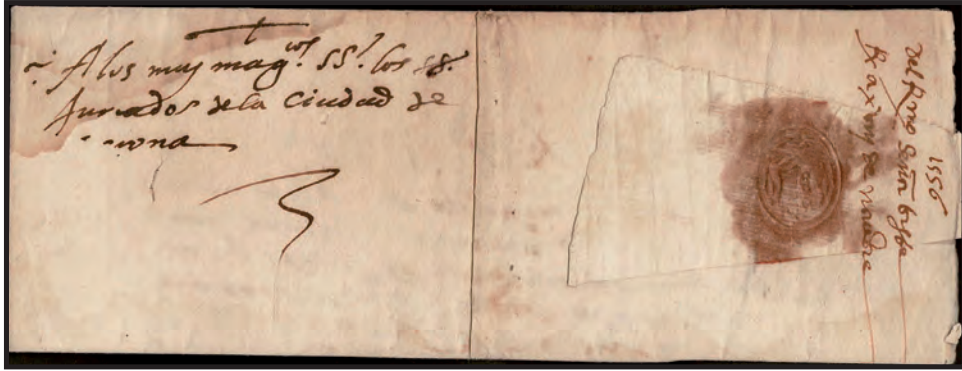 A los muy mag.cos SS.s los SS.
Jurados de la Ciudad de
1556
del Rmo señor bisbe
a x de de